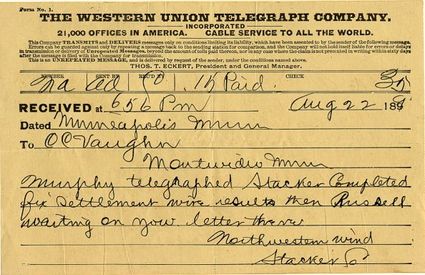 Form No. 1.
THE WESTERN UNION TELEGRAPH COMPANY.
INCORPORATED
21,000 OFFICES IN AMERICA. CABLE SERVICE TO ALL THE WORLD.
This Company TRANSMITS and DELIVERS messages only on conditions limiting its liability, which have been assented to by the sender of the following message.
Errors can be guarded against only by repeating a message back to the sending station for comparison, and the Company will not hold itself liable for errors or delays
in transmission or delivery of Unrepeated Messages, beyond the amount of tolls paid thereon, nor in any case where the claim is not presented in writing within sixty days
after the message is filed with the Company for transmission.
This is an UNREPEATED MESSAGE, and is delivered by request of the sender, under the conditions named above.
THOS. T. ECKERT, President and General Manager.
NUMBER SENT BY REC'D BY CHECK
15 Paid.
RECEIVED at 656 Pm Aug 22 189
Dated Minneapolis Minn
To OC Vaughn
Montevideo Minn
Murphy telegraphed Stacker Completed
fix Settlement wire results then Russell
waiting on your letter there
Northwestern wind
Stacker Co